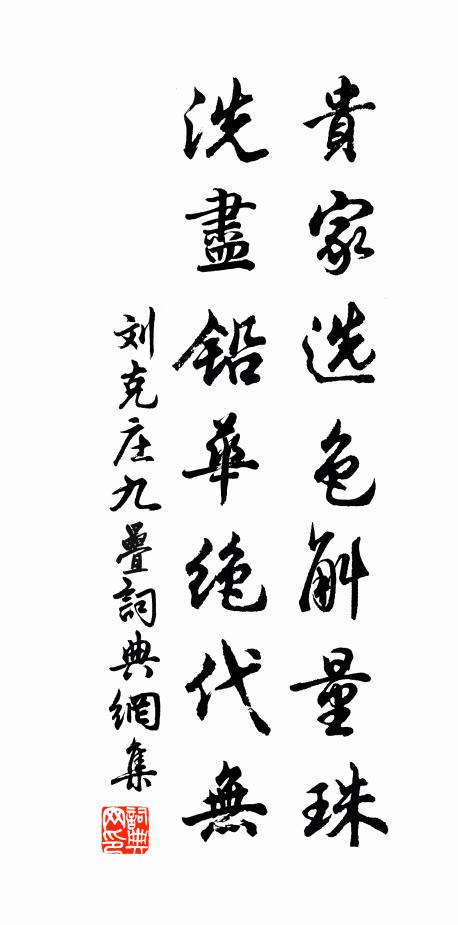 貴家选色斛量珠
洗盡鉛華绝代無
刘克庄九疊詞典網集
詞典
网印